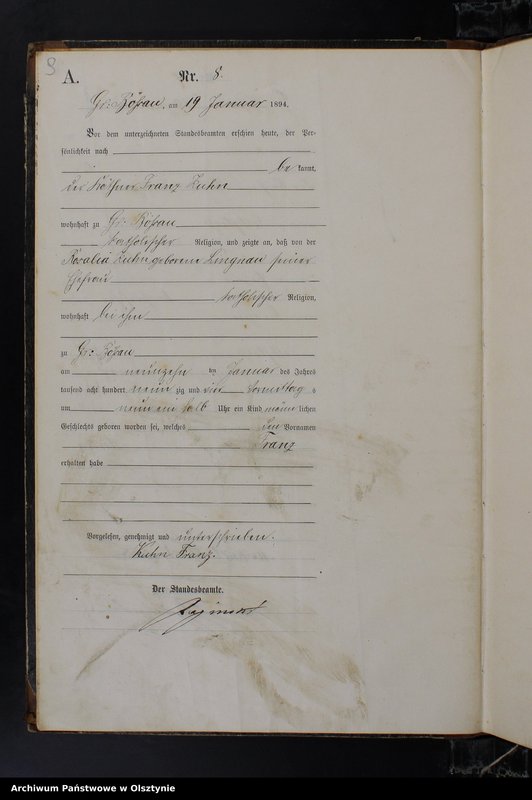 A. Nr. 8.
Gr: Bößau, am 19 Januar 1894.
Vor dem unterzeichneten Standesbeamten erschien heute, der Per-
sönlichkeit nach
be kannt,
der Käthner Franz Kuhn
wohnhaft zu Gr: Bößau
katholischer Religion, und zeigte an, daß von der
Rosalia Kuhn geborene Lingnau seiner
Ehefrau
katholischer Religion,
wohnhaft bei ihm
zu Gr: Bößau
am neunzehn ten Januar des Jahres
tausend acht hundert neun zig und vier Vormittag s
um neun ein halb Uhr ein Kind männ lichen
Geschlechts geboren worden sei, welches den Vornamen
Franz
erhalten habe
Vorgelesen, genehmigt und unterschrieben.
Kuhn Franz.
Der Standesbeamte.
Archiwum Państwowe w Olsztynie